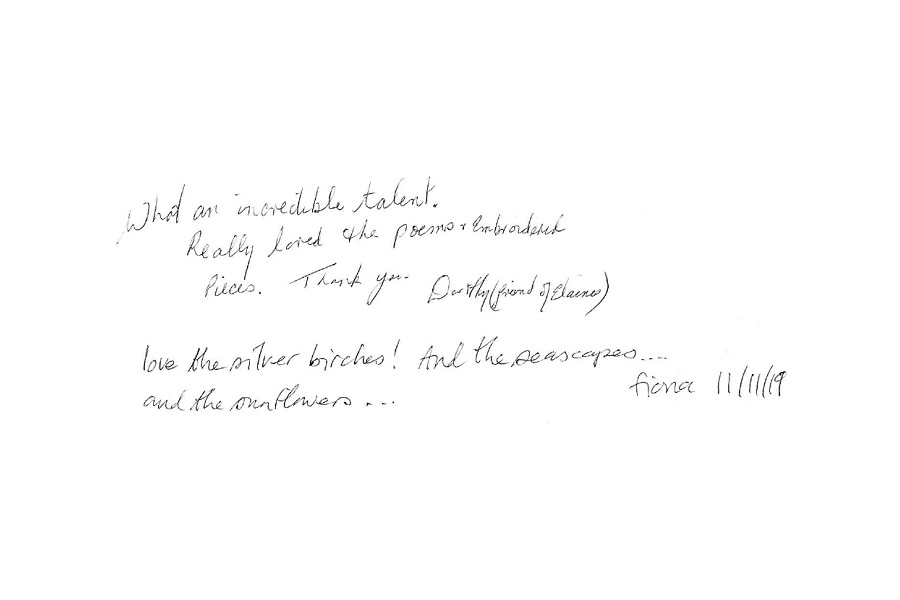 What an incredible talent.
Really loved the poems + Embroidered
Pieces. Thank you Dorothy (friend of Elaines)
love the silver birches! And the seascapes....
fiona 11/11/19
and the sunflowers ...